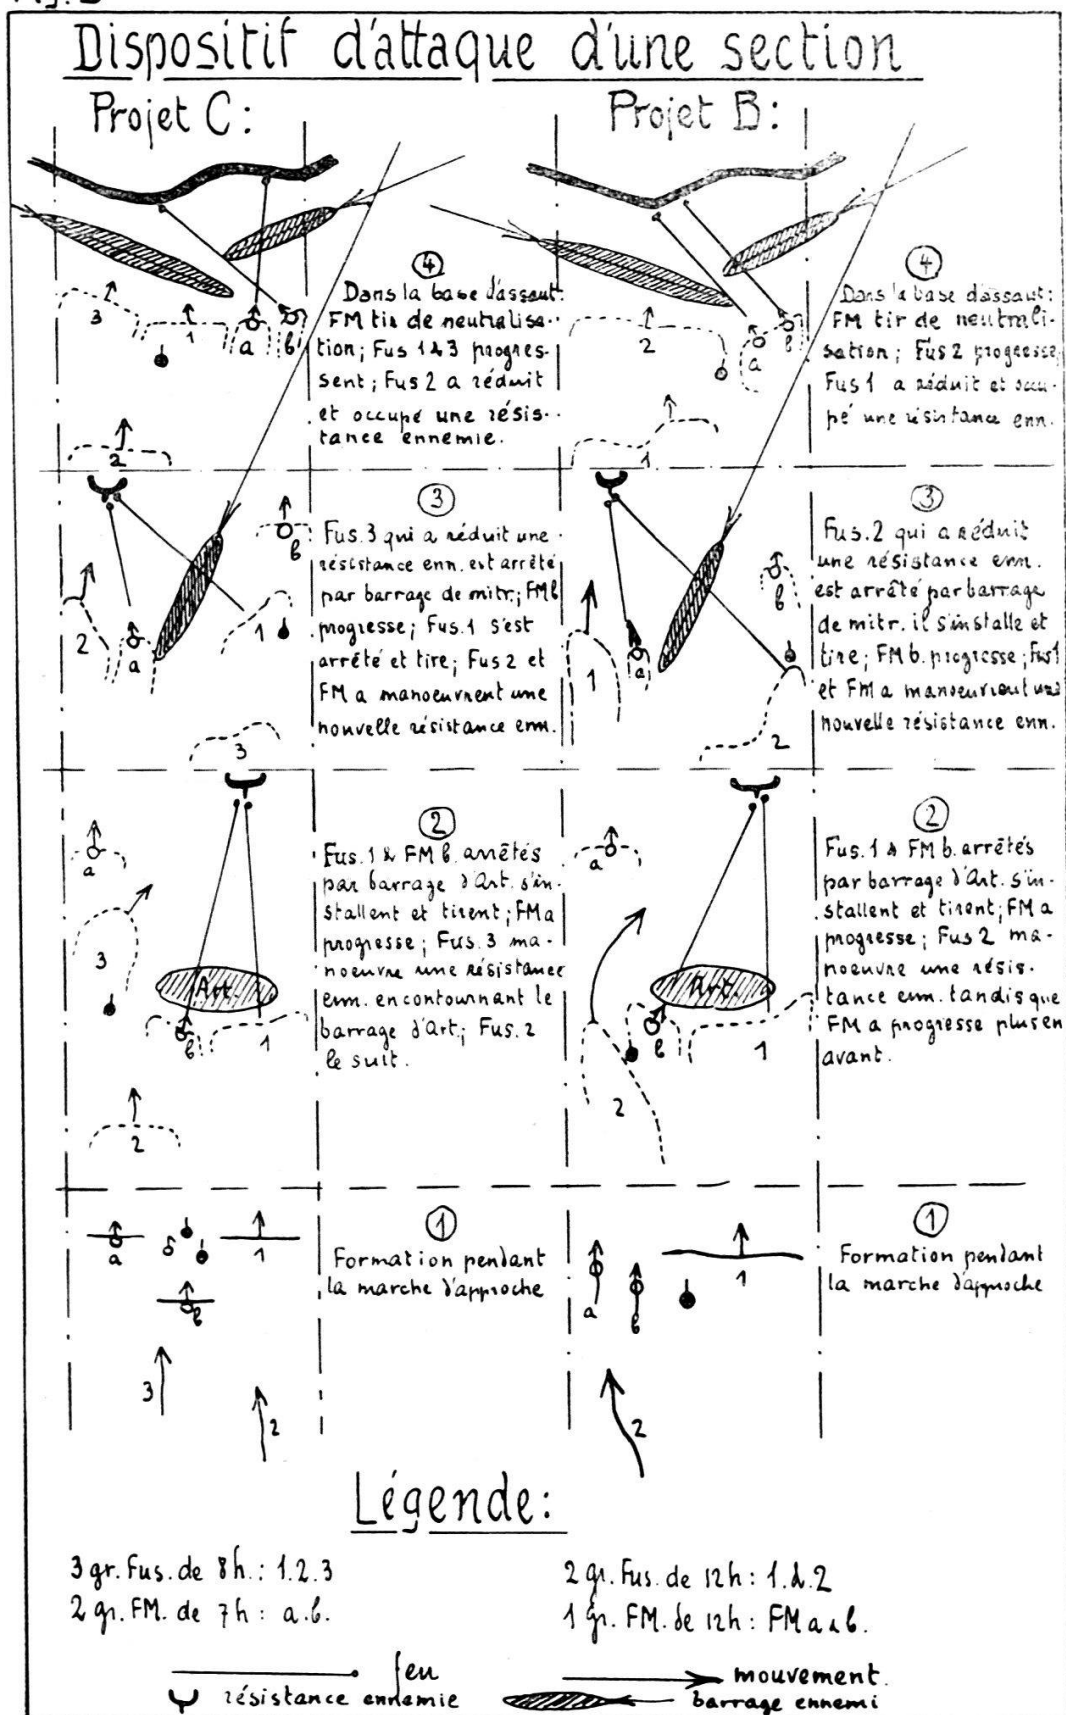 Dispositif d'attaque d'une section
Projet C:
4
Dans la base d'assaut:
FM tir de neutralisa-
tion; Fus 1 & 3 progres-
sent; Fus 2 a réduit
et occupé une résis-
tance ennemie.
3
1
a
b
2
3
Fus. 3 qui a réduit une
résistance enn. est arrêté
par barrage de mitr.; FM b
progresse; Fus. 1 s'est
arrêté et tire; Fus 2 et
FM a manoeuvrent une
nouvelle résistance enn.
b
2
a
1
3
2
Fus. 1 & FM b. arrêtés
par barrage d'Art. s'in-
stallent et tirent; FM a
progresse; Fus. 3 ma-
noeuvre une résistance
enn. en contournant le
barrage d'Art.; Fus. 2
le suit.
a
3
Art.
b
1
2
1
Formation pendant
la marche d'approche
a
1
b
3
2
Projet B:
4
Dans la base d'assaut:
FM tir de neutrali-
sation; Fus 2 progresse,
Fus 1 a réduit et occu-
pé une résistance enn.
2
a
b
1
3
Fus. 2 qui a réduit
une résistance enn.
est arrêté par barrage
de mitr. il s'installe et
tire; FM b. progresse; Fus 1
et FM a manoeuvrent une
nouvelle résistance enn.
b
1
a
2
2
Fus. 1 & FM b. arrêtés
par barrage d'Art. s'in-
stallent et tirent; FM a
progresse; Fus 2 ma-
noeuvre une résis-
tance enn. tandis que
FM a progresse plus en
avant.
a
Art.
b
1
2
1
Formation pendant
la marche d'approche
a
b
1
2
Légende:
3 gr. Fus. de 8h.: 1.2.3
2 gr. FM. de 7h: a.b.
2 gr. Fus. de 12h: 1.&.2
1 gr. FM. de 12h: FM a & b.
feu
mouvement.
résistance ennemie
barrage ennemi